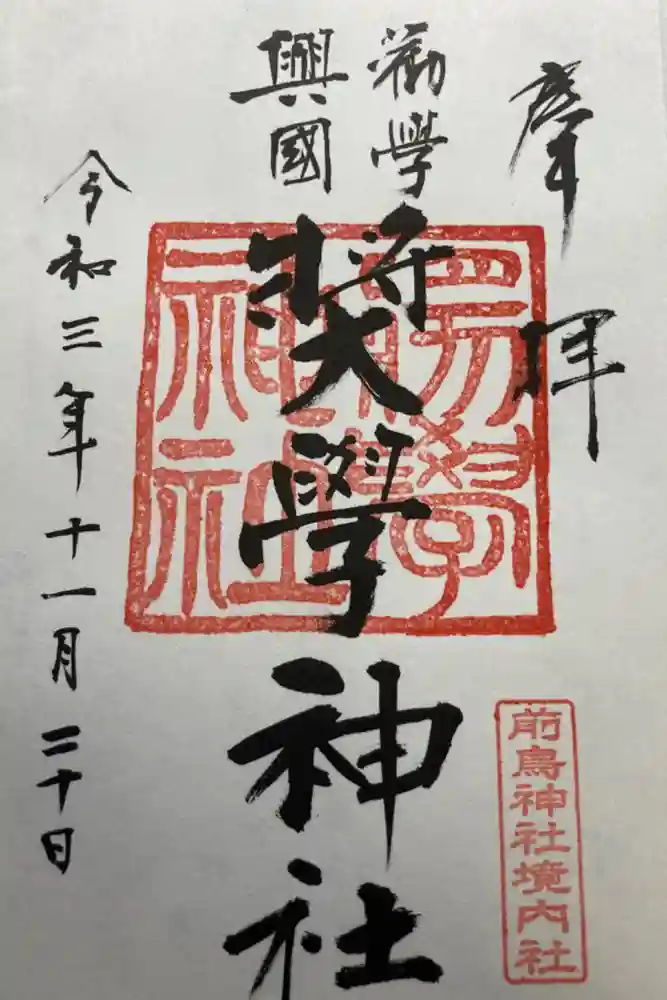 奉拝
勸學
興國
奬學神社
學神社
前鳥神社境内社
令和三年十一月二十日